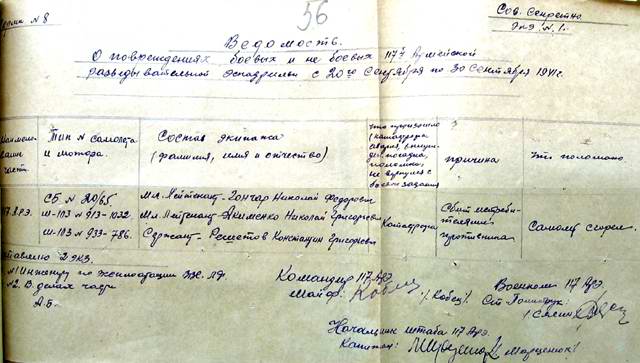 56
Сов. Секретно.
Экз. №1.
Форма №8
Ведомость.
О повреждениях боевых и не боевых 117й Армейской
разведывательной эскадрильи с 20го Сентября по 30 Сентября 1941г.
Тип № самолета
и мотора.
Состав экипажа
(фамилия, имя и отчество)
что произошло
(катастрофа
авария, вынужд.
посадка,
поломка,
не вернулся с
боевого задания
причина
Что поломано.
117 АРЭ.
СБ № 20/65
М-103 № 913-1032.
М-103 № 933-786.
Мл. Лейтенант - Гончар Николай Федорович
Мл. Лейтенант - Акименко Николай Григорьевич
Сержант - Решетов Константин Григорьевич
Катастрофа
Сбит истреби-
телями
противника
Самолет сгорел.
2 экз.
№1 Инженеру по эксплоатации
№2. В делах части
А.Б.
Командир 117 АРЭ
Майор:
/Кобец/
Военком 117 АРЭ.
Ст. Политрук:
Начальник штаба 117 АРЭ.
Капитан: